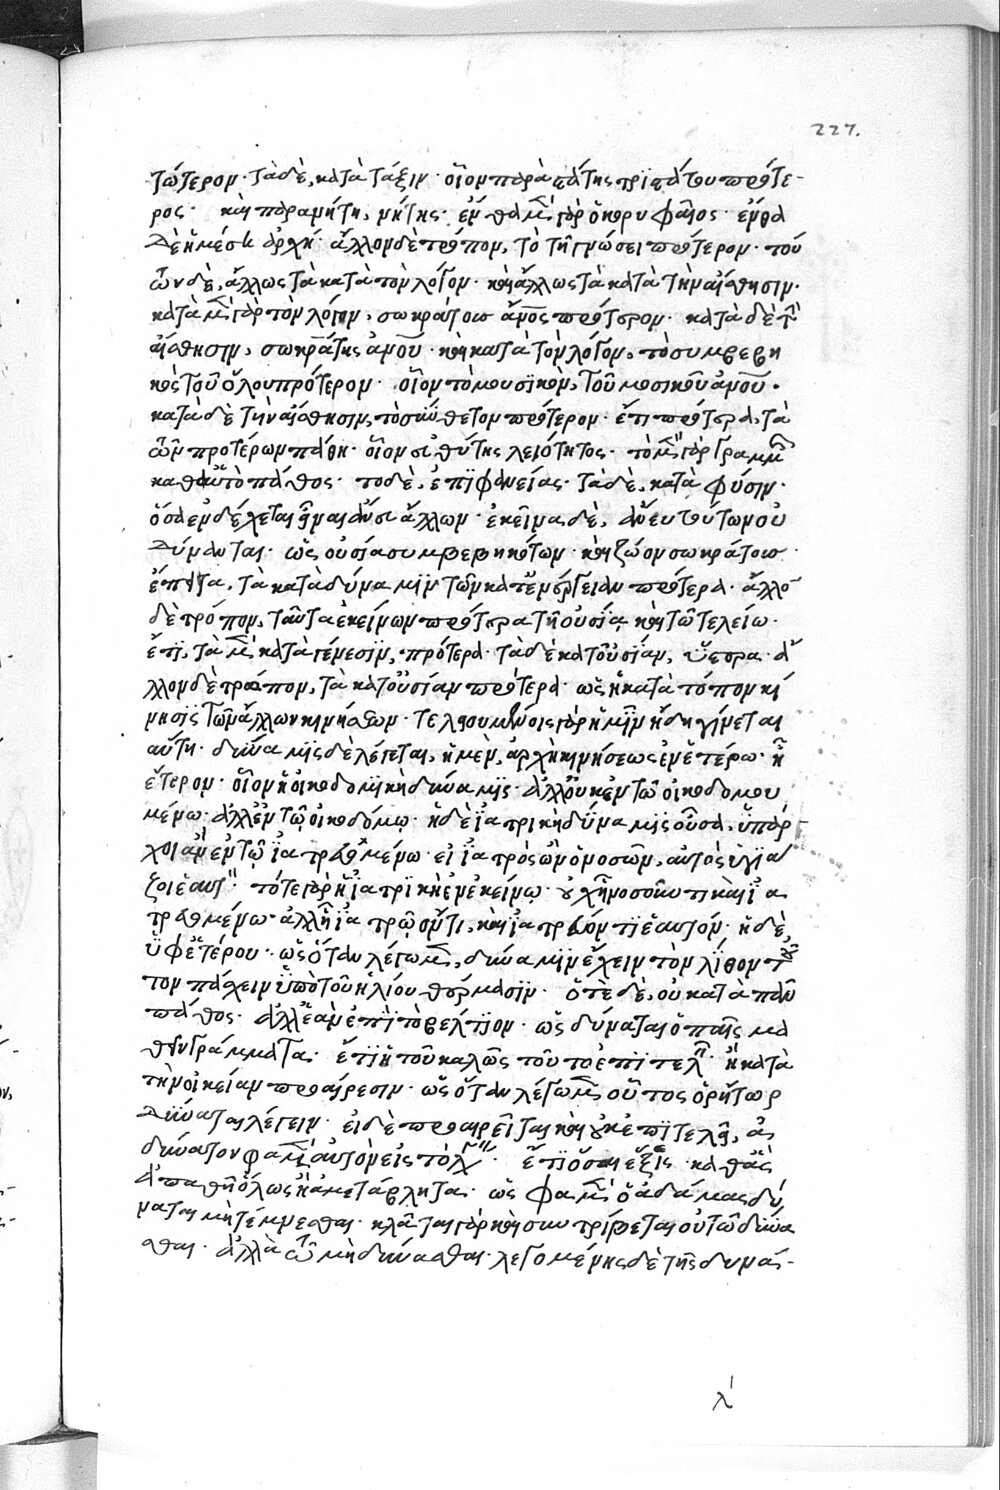 227.
τώτερον· τὰ δὲ, κατὰ τάξιν· οἷον παραστάτης τριτοστάτου πρότε-
ρος· καὶ παρανήτη, νήτης· ἔνθα μὲν γὰρ ὁ κορυφαῖος· ἔνθα
δὲ ἡ μέση ἀρχή· ἄλλον δὲ τρόπον, τὸ τῇ γνώσει πρότερον· τού
των δὲ, ἄλλως τὰ κατὰ τὸν λόγον· καὶ ἄλλως τὰ κατὰ τὴν αἴσθησιν·
κατὰ μὲν γὰρ τὸν λόγον, σωκράτους ἄνος πρότερον· κατὰ δὲ τὴν
αἴσθησιν, σωκράτης ἀνου· καὶ κατὰ τὸν λόγον, τὸ συμβεβη
κὸς τοῦ ὅλου πρότερον· οἷον τὸ μουσικὸν, τοῦ μουσικοῦ ἀνου·
κατὰ δὲ τὴν αἴσθησιν, τὸ σύνθετον πρότερον· ἔτι πρότερα, τὰ
τῶν προτέρων πάθη· οἷον εὐθύτης λειότητος· τὸ μὲν γὰρ γραμμῆς
καθ' αὑτὸ πάθος· τὸ δὲ, ἐπιφανείας· τὰ δὲ, κατὰ φύσιν·
ὅσα ἐνδέχεται εἶναι ἄνευ ἄλλων· ἐκεῖνα δὲ, ἄνευ τούτων οὐ
δύνανται· ὡς οὐσία συμβεβηκότων· καὶ ζῶον σωκράτους·
ἔπειτα, τὰ κατὰ δύναμιν τῶν κατ' ἐνέργειαν πρότερα· ἄλλον
δὲ τρόπον, ταῦτα ἐκείνων πρότερα τῇ οὐσίᾳ καὶ τῷ τελείω·
ἔτι, τὰ μὲν κατὰ γένεσιν, πρότερα· τὰ δὲ κατ' οὐσίαν, ὕστερα· ἄ
λλον δὲ τρόπον, τὰ κατ' οὐσίαν πρότερα· ὡς ἡ κατὰ τόπον κί
νησις τῶν ἄλλων κινήσεων· τελειουμένοις γὰρ ἡμῖν ἤδη γίνεται
αὕτη· δύναμις δὲ λέγεται, ἡ μὲν, ἀρχὴ κινήσεως ἐν ἑτέρω· ἢ
ἕτερον· οἷον ἡ οἰκοδομικὴ δύναμις· ἀλλ' οὐκ ἐν τῷ οἰκοδομου
μένω· ἀλλ' ἐν τῷ οἰκοδόμῳ· ἡ δὲ ἰατρικὴ δύναμις οὖσα, ὑπάρ
χοι ἂν ἐν τῷ ἰατρευομένω· εἰ ἰατρὸς ὢν ὁ νοσῶν, αὐτὸς ὑγιά
ζοι ἑαυτόν· τότε γὰρ ἡ ἰατρικὴ ἐν ἐκείνῳ· οὐχ ᾗ νοσοῦντι καὶ ἰα
τρευομένω· ἀλλ' ᾗ ἰατρῷ ὄντι, καὶ ἰατρεύοντι ἑαυτόν· ἡ δὲ,
ὑφ' ἑτέρου· ὡς ὅταν λέγωμεν, δύναμιν ἔχειν τὸν λίθον τοῦ
τον πάσχειν ὑπὸ τοῦ ἡλίου θέρμασιν· ὁτὲ δὲ, οὐ κατὰ πᾶν
πάθος· ἀλλ' ἐὰν ἐπὶ τὸ βέλτιον· ὡς δύναται ὁ παῖς μα
θεῖν γράμματα· ἔτι ἡ τοῦ καλῶς τοῦτο ἐπιτελεῖν· ἢ κατὰ
τὴν οἰκείαν προαίρεσιν· ὡς ὅταν λέγωμεν οὗτος ὁ ῥήτωρ
δύναται λέγειν· εἰ δὲ προαιρεῖται καὶ οὐκ ἐπιτελεῖ, ἀ
δύνατον φαμὲν αὐτὸν εἰς τὸ λέγειν· ἔτι ὅσαι ἕξεις καθ' ἃς
ἀπαθῆ ὅλως ἢ ἀμετάβλητα· ὡς φαμὲν ὁ ἀδάμας δύ
ναται μὴ τέμνεσθαι· κλᾶται γὰρ καὶ συντρίβεται οὐ τῷ δύνα
σθαι· ἀλλὰ τῷ μὴ δύνασθαι· λεγομένης δὲ τῆς δυνά-
λ'